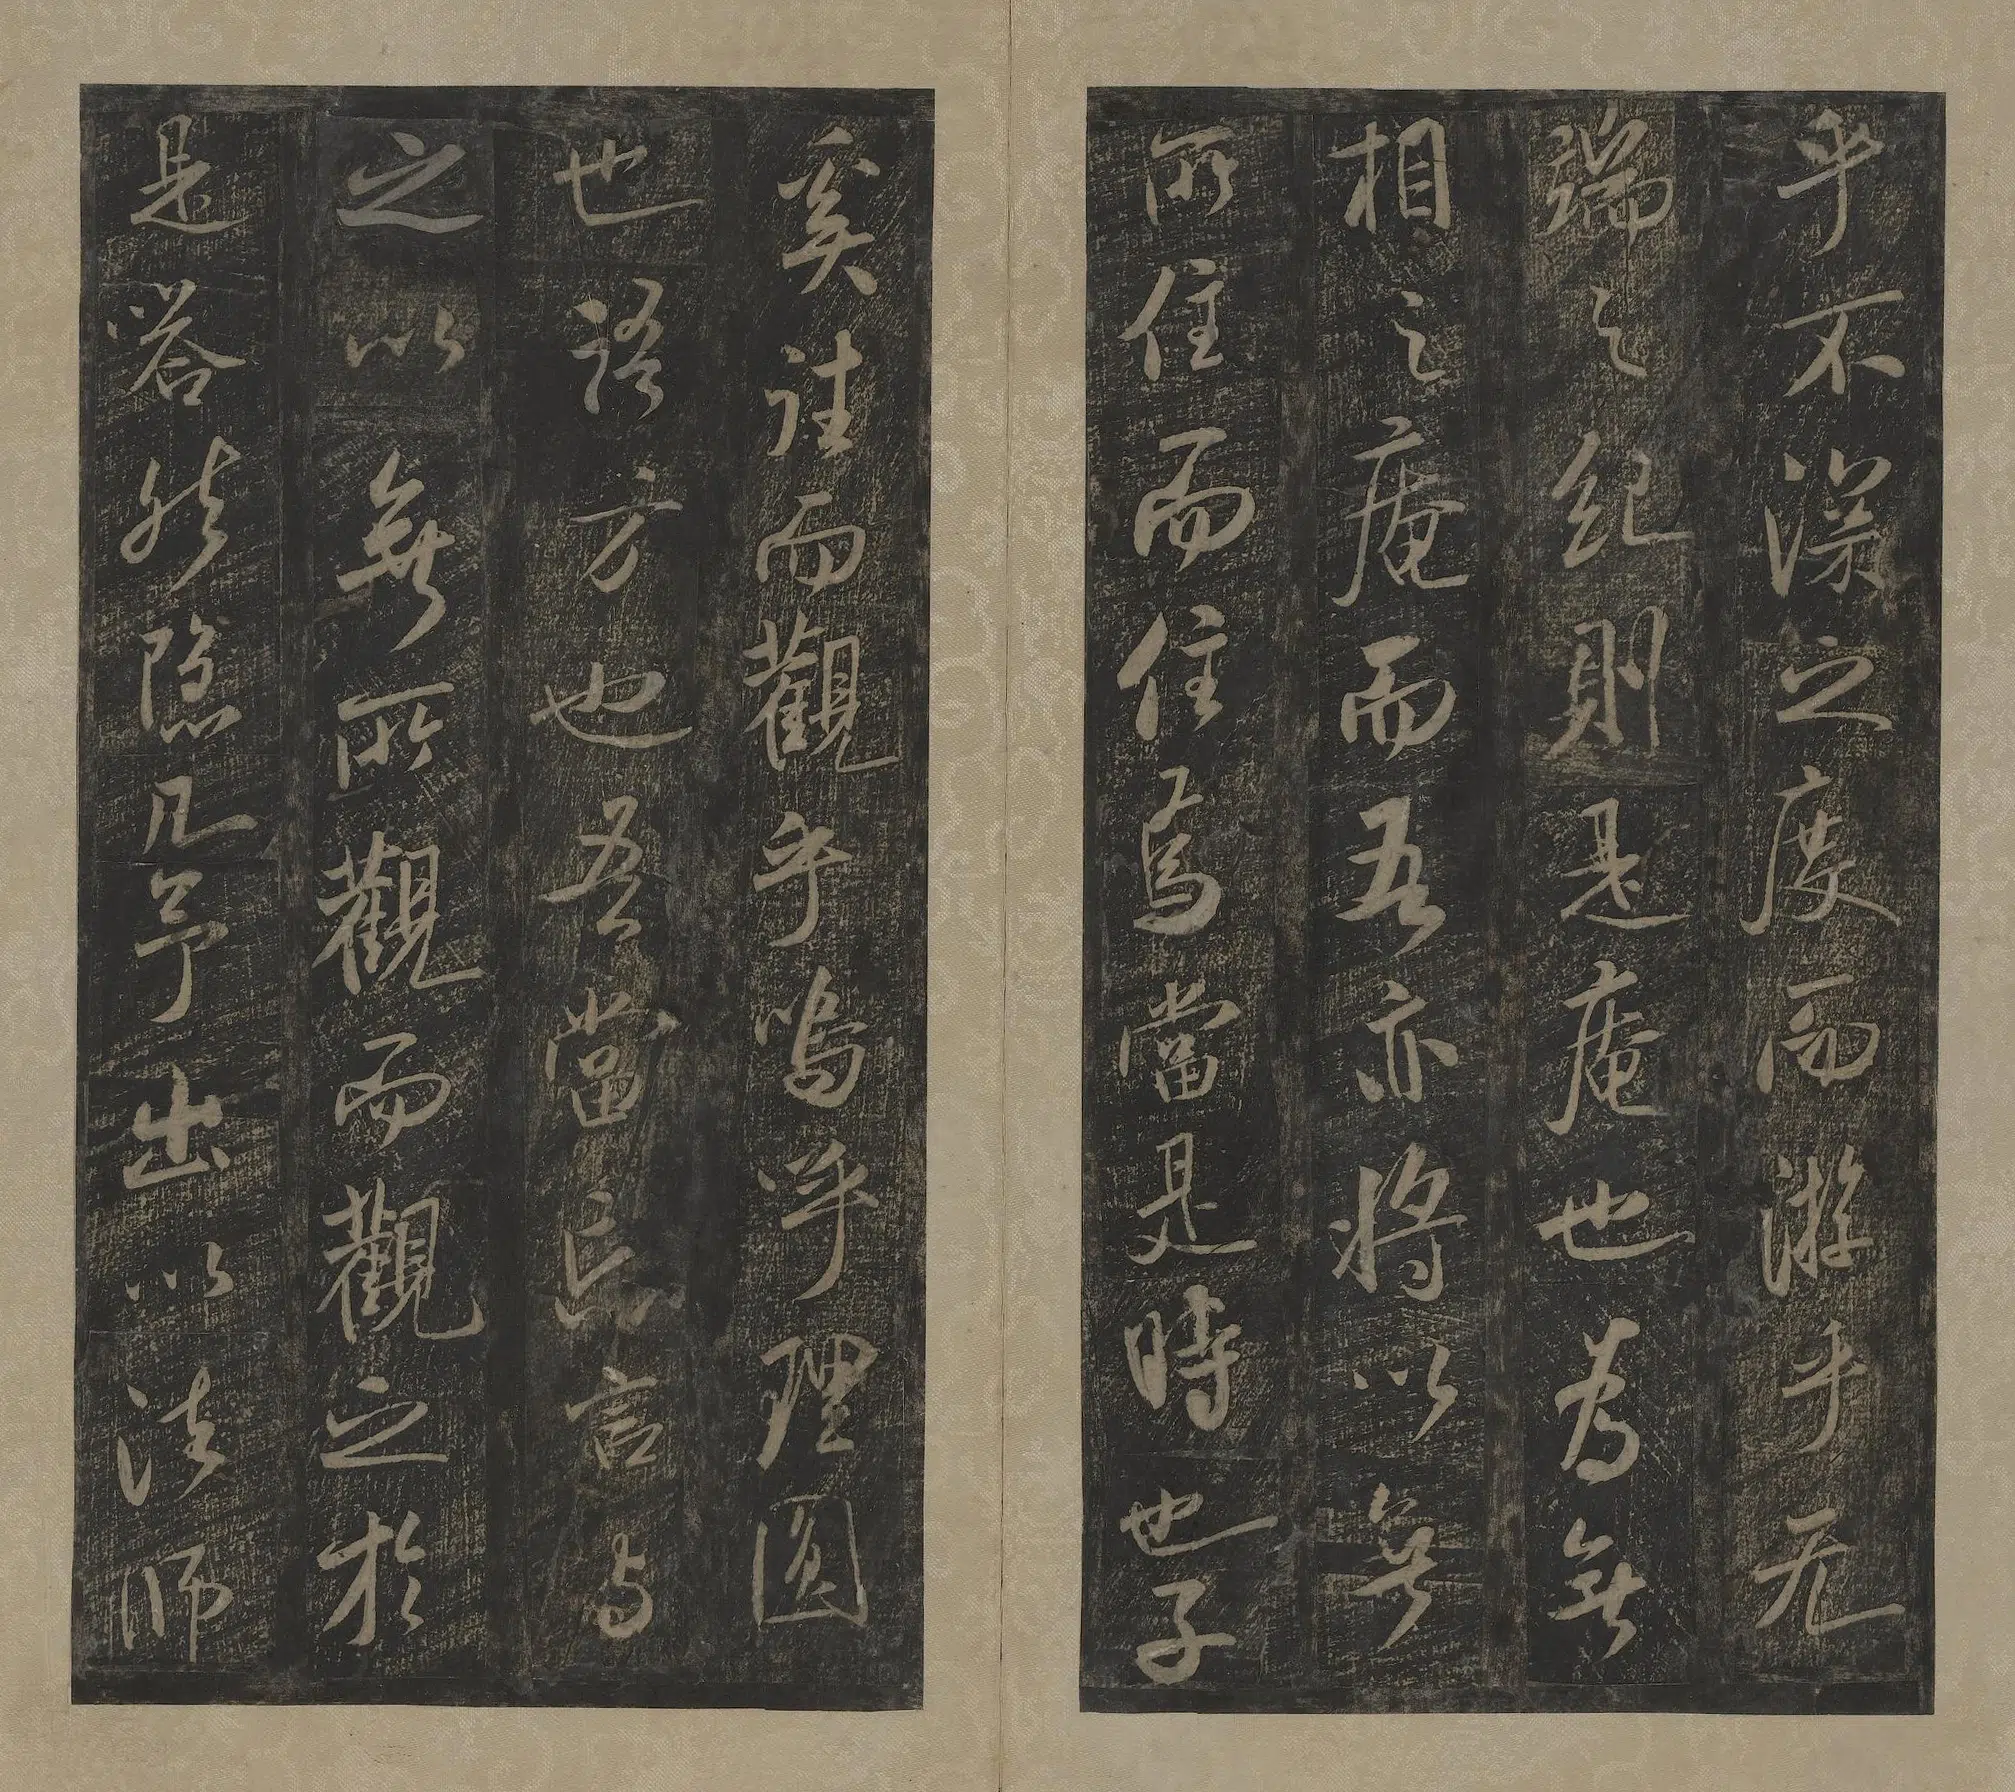 乎不深之度而游乎无
端之紀則是庵也為無
相之庵而吾亦將以無
所住而住焉當是時也子
奚詿而觀乎嗚呼理圓
也語方也吾當忘言與
之以無所觀而觀之於
是嗒然隱几予出以法師